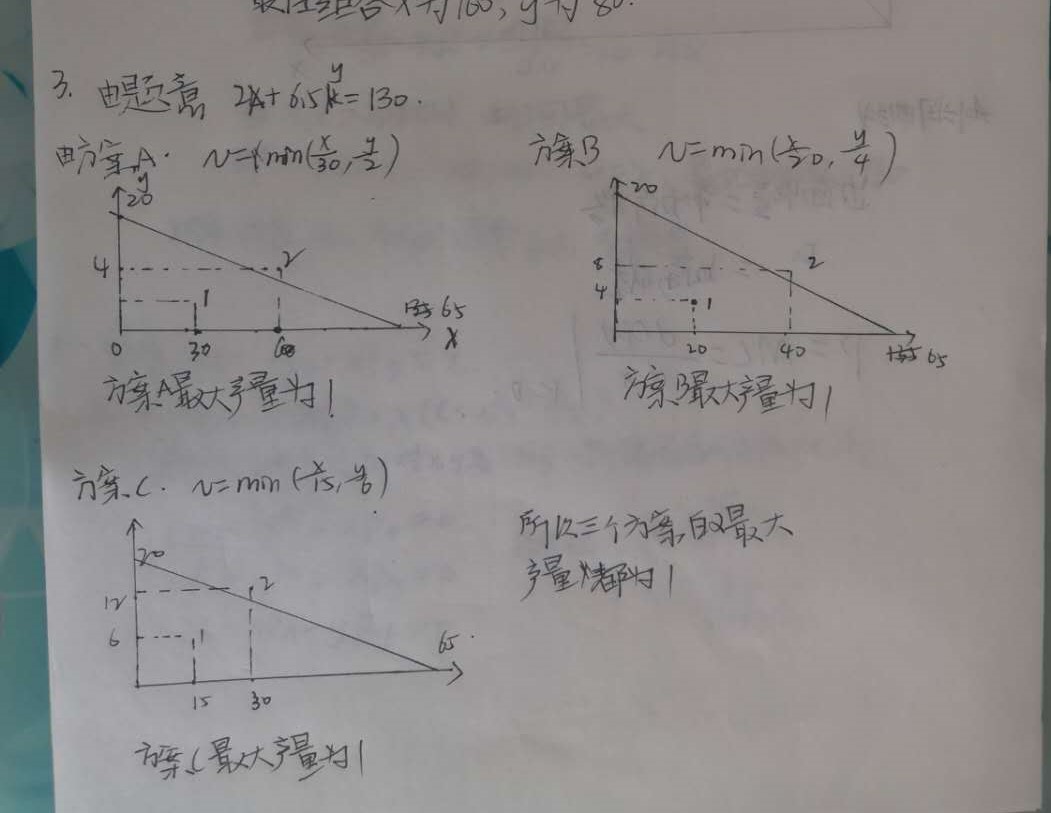 最佳组合 x为160, y为80.
3. 由题意 2x+6.5y=130.
由方案A. N=min(x/30, y/2)
y
20
4
2
1
0 30 60 65 x
方案A最大产量为1
方案B N=min(x/20, y/4)
20
8
4
2
1
20 40 65
方案B最大产量为1
方案C. N=min(x/15, y/6)
20
12
6
2
1
15 30 65
方案C最大产量为1
所以三个方案的最大
产量都为1